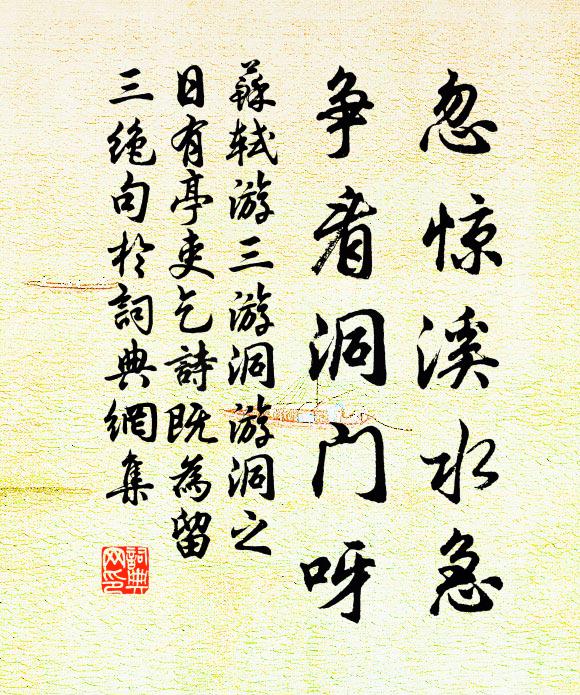 忽惊溪水急
争看洞门呀
蘇轼游三游洞游洞之
日有亭吏乞詩既為留
三絶句於詞典網集
詞典网印